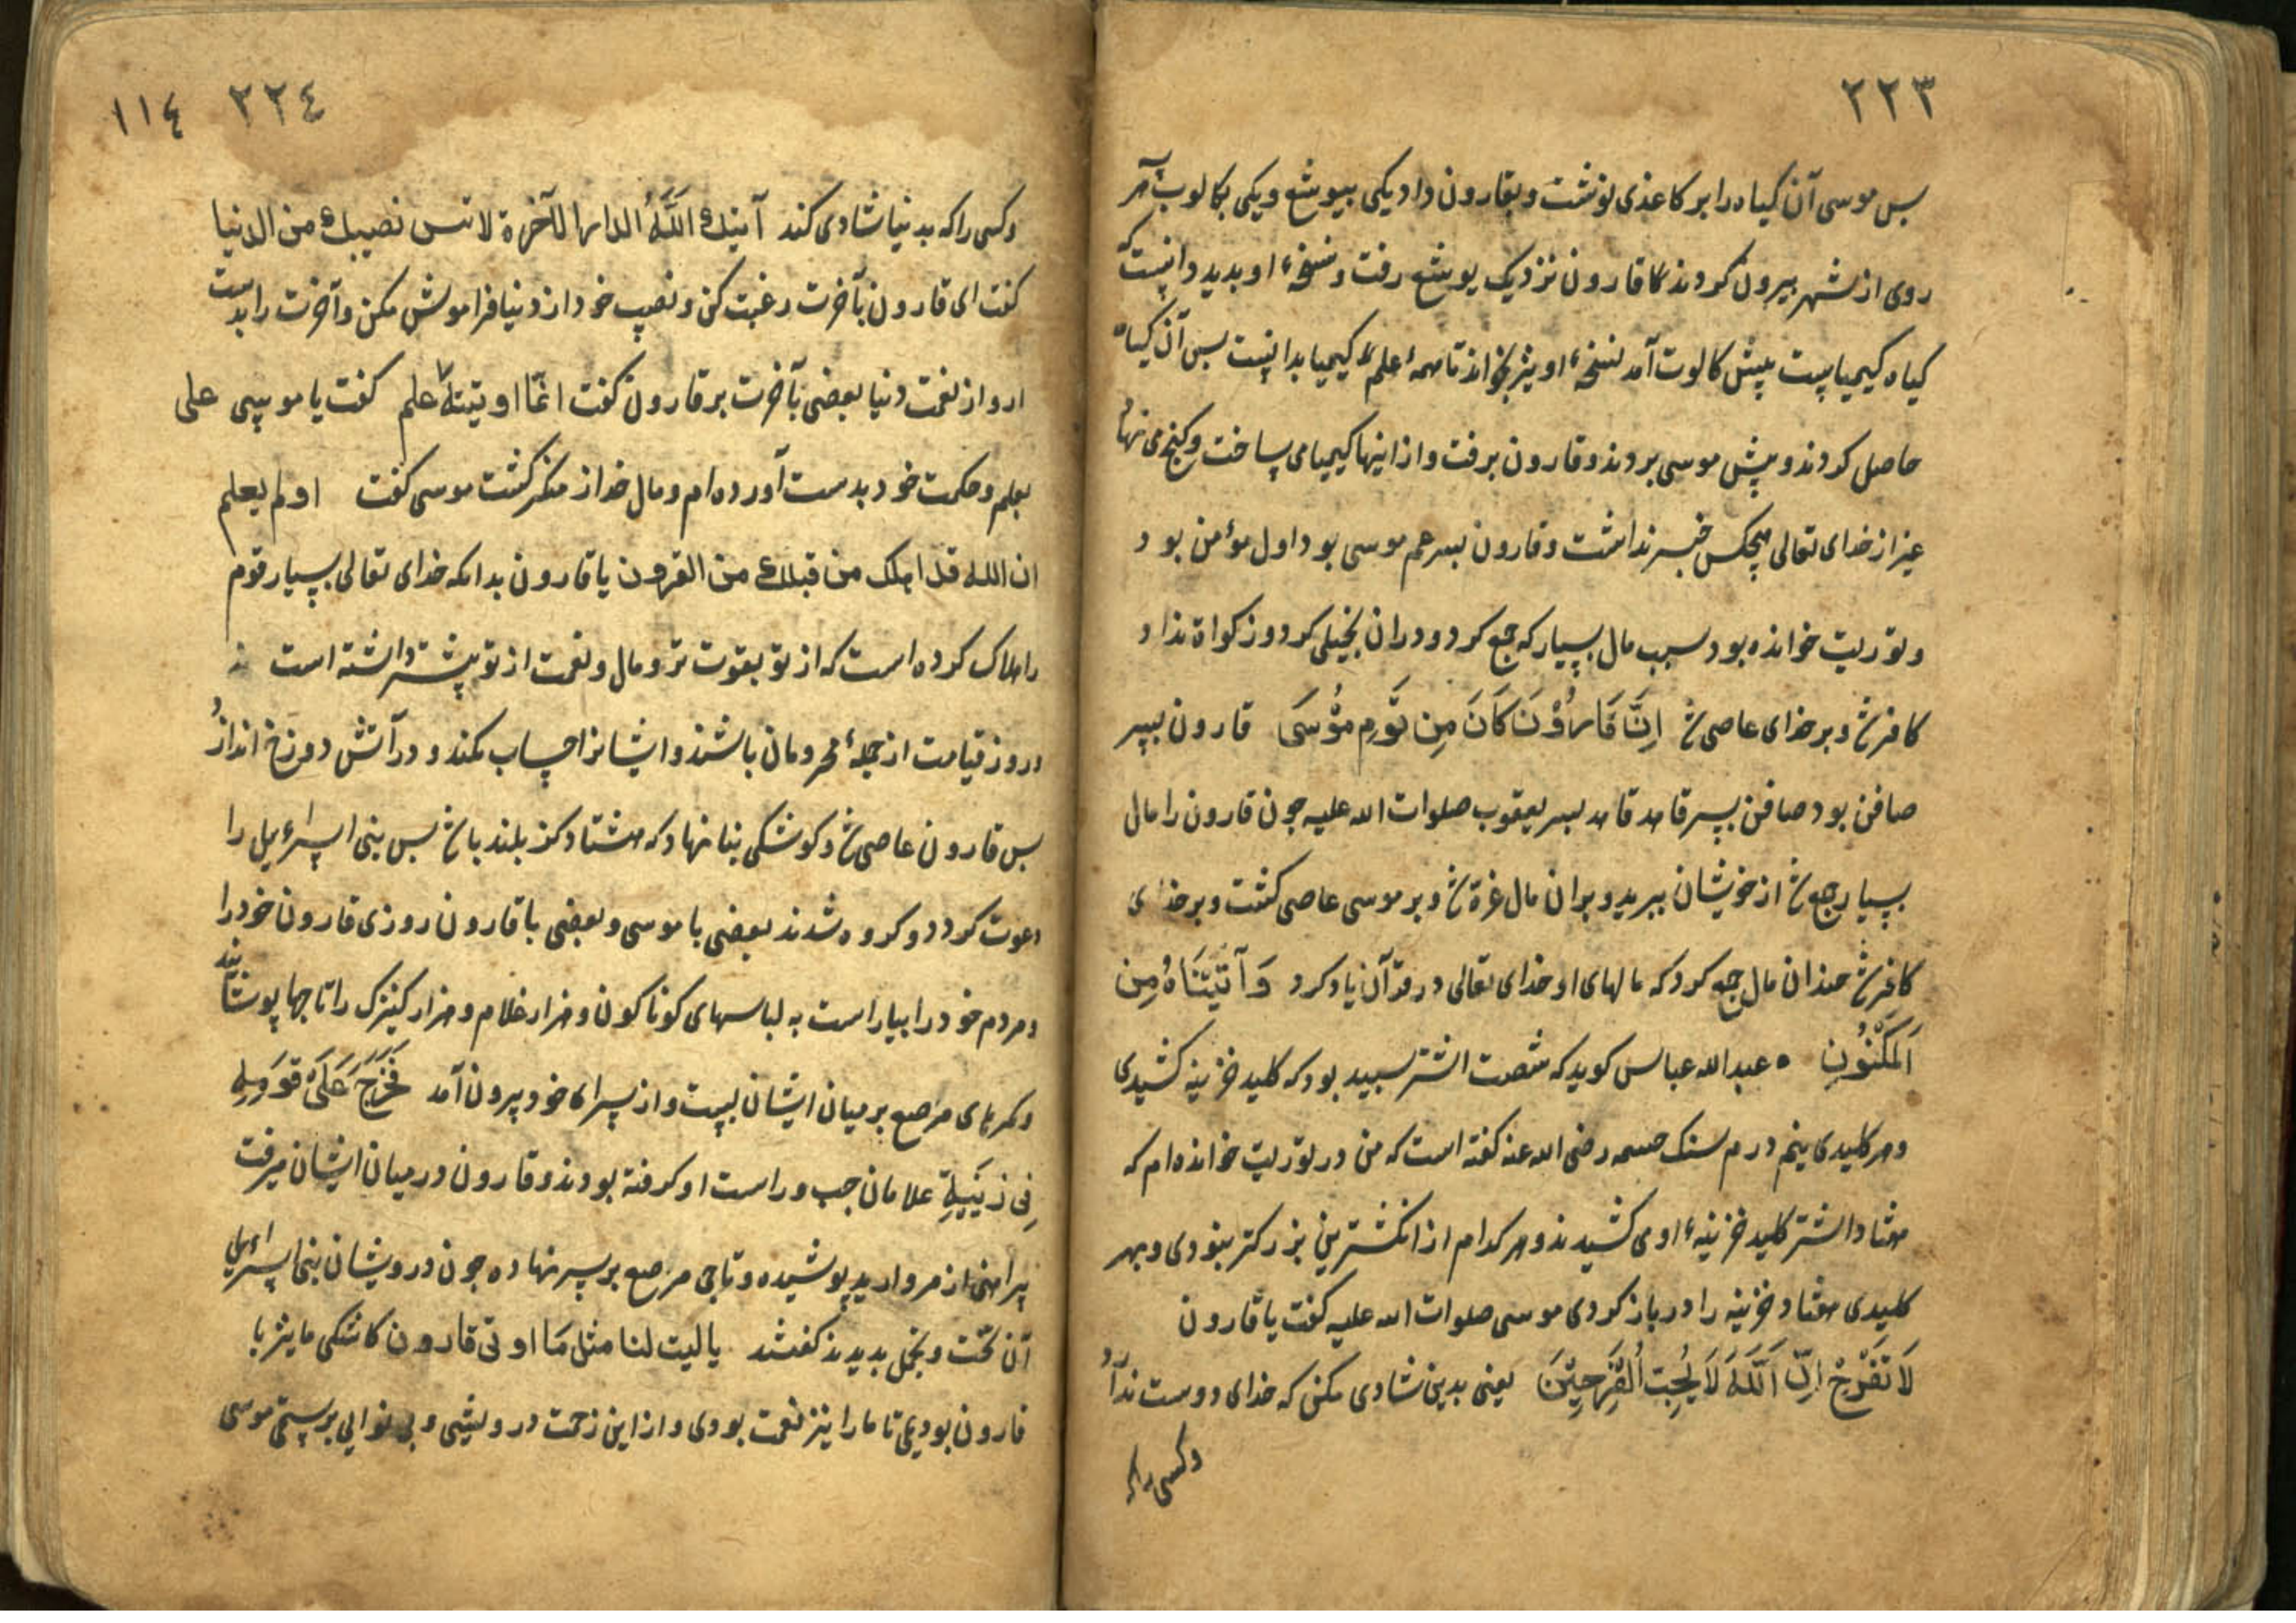 ٢٢٣
بس موسی آن کیاه را بر کاغذی نوشت و بقارون داد یکی بیوشع و یکی بکالوب هر
روی از شهر بیرون کردند تا قارون نزدیک یوشع رفت و نسخهٔ او بدید دانست که
کیاه کیمیاست پیش کالوت آمد نسخهٔ او نیز بخواند تا همهٔ علم کیمیا بدانست بس آن کیاه
حاصل کردند و پیش موسی بردند و قارون برفت و از اینها کیمیا می ساخت و کنج می نهاد
غیر از خدای تعالی هیچکس خبر نداشت و قارون بسر عم موسی بود اول مؤمن بود
و توریت خوانده بود سبب مال بسیار که جمع کرد و دران بخیلی کرد و زکواة نداد
کافر شد و بر خدای عاصی شد اِنَّ قَارُوْنَ كَانَ مِن قَوْمِ مُوْسَى قارون بسر
صافن بود صافن بسر قاهد قاهد بسر یعقوب صلوات الله علیه جون قارون را مال
بسیار جمع شد از خویشان ببرید و بران مال غرّة شد و بر موسی عاصی کشت و بر خدای
کافر شد جندان مال جمع کرد که مالهای او خدای تعالی در قرآن یاد کرد وَآتَيْنَاهُ مِن
اَلمَكْنُونِ ه عبدالله عباس کوید که شصت اشتر سبید بود که کلید خزینه کشیدی
و هر کلیدی نیم درم سنک رضی الله عنه کفته است که من در توریت خوانده ام که
هفتاد اشتر کلید خزینهٔ او می کشیدند و هر کدام از انکشترین بزرکتر نبودی و بهر
کلیدی هفتاد خزینه را در باز کردی موسی صلوات الله علیه کفت یا قارون
لَا تَفْرَحْ اِنَّ اَللَّهَ لَا يُحِبُّ اُلْفَرِحِيْنَ یعنی بدین شادی مکن که خدای دوست ندارد
وکسی را که
٢٢٤ ١١٤
وکسی را که بدنیا شادی کند آتیك اللَّهُ الدار الآخرة لا تنس نصیبك من الدنیا
کفت ای قارون بآخرت رغبت کن و نصیب خود از دنیا فراموش مکن و آخرت را بدست
ار و از نعمت دنیا بعضی بآخرت بر قارون کفت انّما اوتیتهٔ علی علم کفت یا موسی
بعلم و حکمت خود بدست آورده ام و مال خدا را منکر کشت موسی کفت اولم یعلم
ان الله قد اهلك من قبلك من القرون یا قارون بدانکه خدای تعالی بسیار قوم
را هلاک کرده است که از تو بقوت تر و مال و نعمت از تو بیشتر داشته است
در روز قیامت از جملهٔ محرومان باشند و ایشانرا حساب نکند و در آتش دوزخ اندازد
بس قارون عاصی شد و کوشکی بنا نهاد که هشتاد کز بلند باشد بس بنی اسرائیل را
دعوت کرد دو کروه شدند بعضی با موسی و بعضی با قارون روزی قارون خود را
و مردم خود را بیاراست به لباسهای کوناکون و هزار غلام و هزار کنیزک را تاجها پوشانید
و کمرهای مرصع بر میان ایشان ببست و از سرای خود بیرون آمد فَخَرَجَ عَلَى قَوْمِهِ
فِی زِیْنَتِهِ غلامان جب و راست او کرفته بودند و قارون در میان ایشان میرفت
پیراهنی از مروارید پوشیده و تاجی مرصع بر سر نهاده جون درویشان بنی اسرائیل
آن تخت و تجمل بدیدند کفتند یا لیت لنا مثل مَا اوتی قارون کاشکی ما نیز با
قارون بودیمی تا ما را نیز نعمت بودی و از این زحمت درویشی و بی نوایی برستی موسی